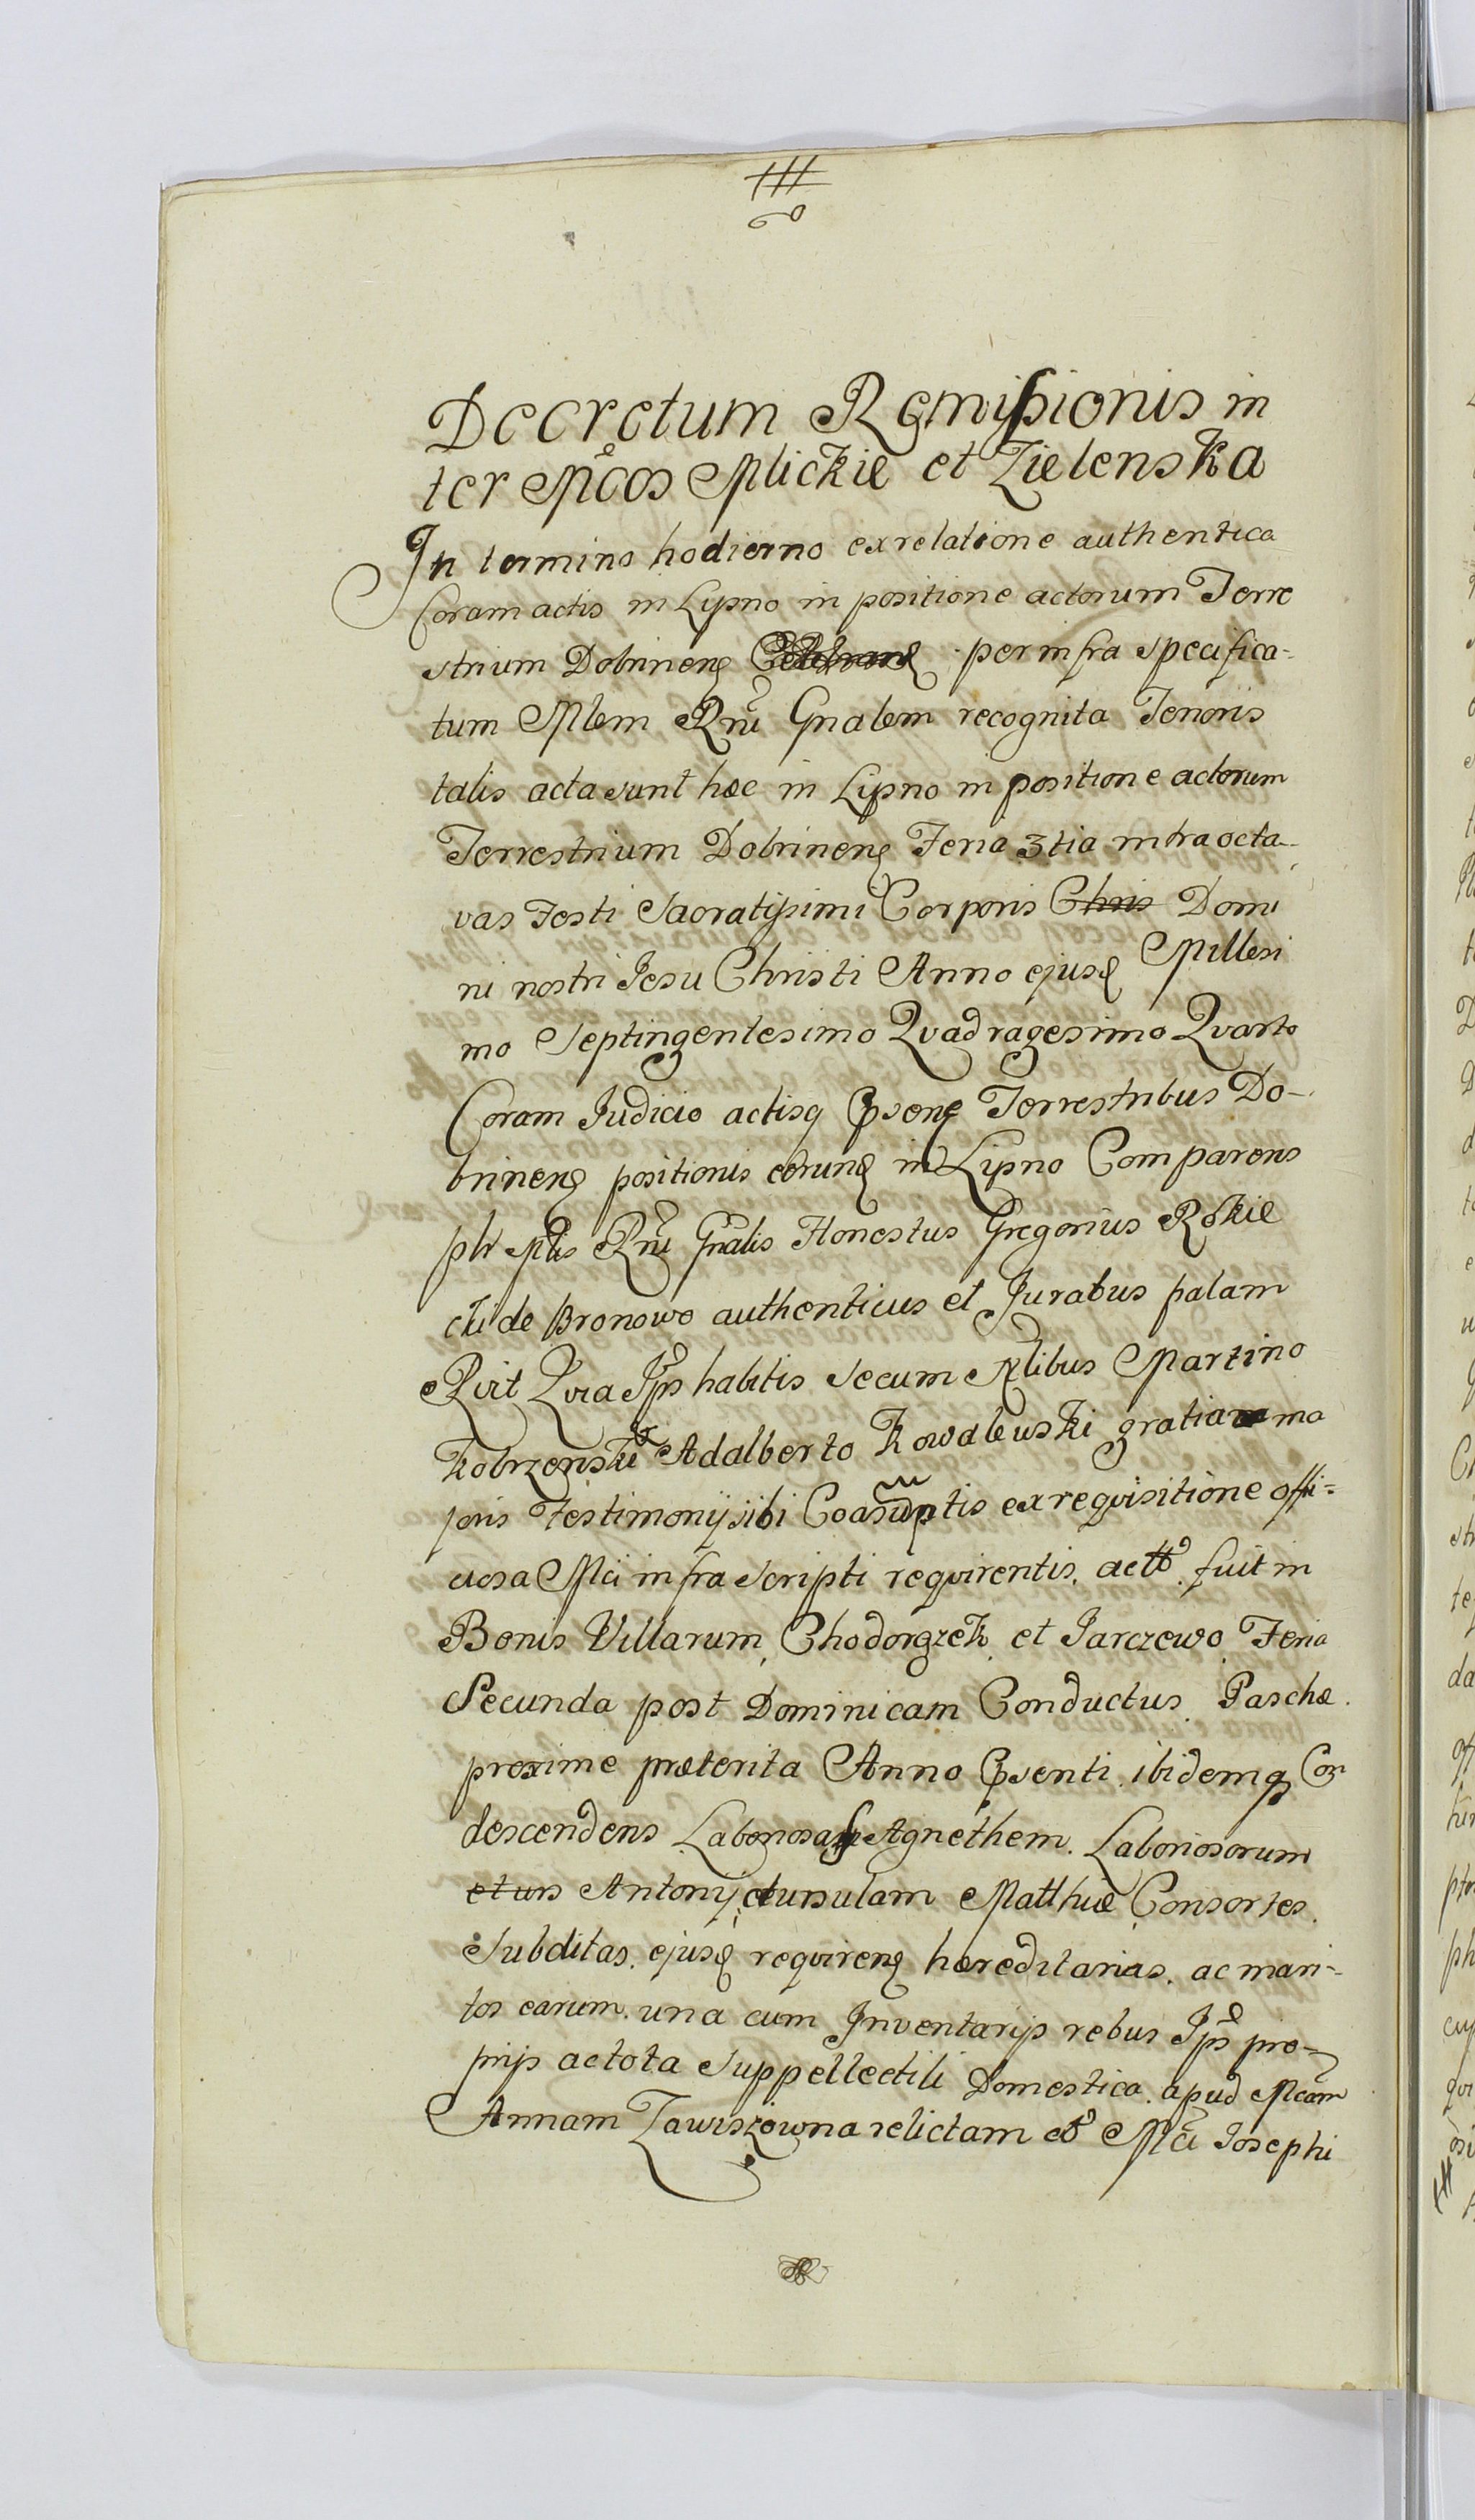 Decretum Remissionis in
ter Mcos Mlickie et Zielenska
In termino hodierno ex relatione authentica
Coram actis in Lipno in positione actorum Terre
strium Dobrinens per infra specifica-
tum Mlem Rni Gnalem recognita Tenoris
talis acta sunt hæc in Lipno in positione actorum
Terrestrium Dobrinens Feria 3tia intra octa-
vas Festi Sacratissimi Corporis Chris Domi
ni nostri Jesu Christi Anno ejusd Millesi
mo Septingentesimo Qvadragesimo Qvarto
Coram Judicio actisq Psens Terrestribus Do-
brinens positionis eorund in Lipno Comparens
plr Mlis Rni Gnalis Honestus Gregorius Rokic
cki de Bronowo authenticus et Juratus palam
Rvit Qvia Ips habitis secum Nlibus Martino
Kobrzenski Adalberto Kowalewski gratia ma
joris Testimonij sibi Coasumptis ex reqvisitione offi-
ciosa Mci infra scripti reqvirentis, actt fuit in
Bonis Villarum Chodorązek et Jarczewo Feria
Secunda post Dominicam Conductus Paschæ
proxime præterita Anno Psenti ibidemq Con
descendens Laboriosas Agnethem Laboriosorum
et urs Antonij et ursulam Matthiæ Consortes
Subditas ejusd reqvirens hæreditarias ac mari-
tos earum una cum Inventarijs rebus Ips pro-
prijs ac tota Suppellectili Domestica apud Mcam
Annam Zawiszowna relictam Mci Josephi